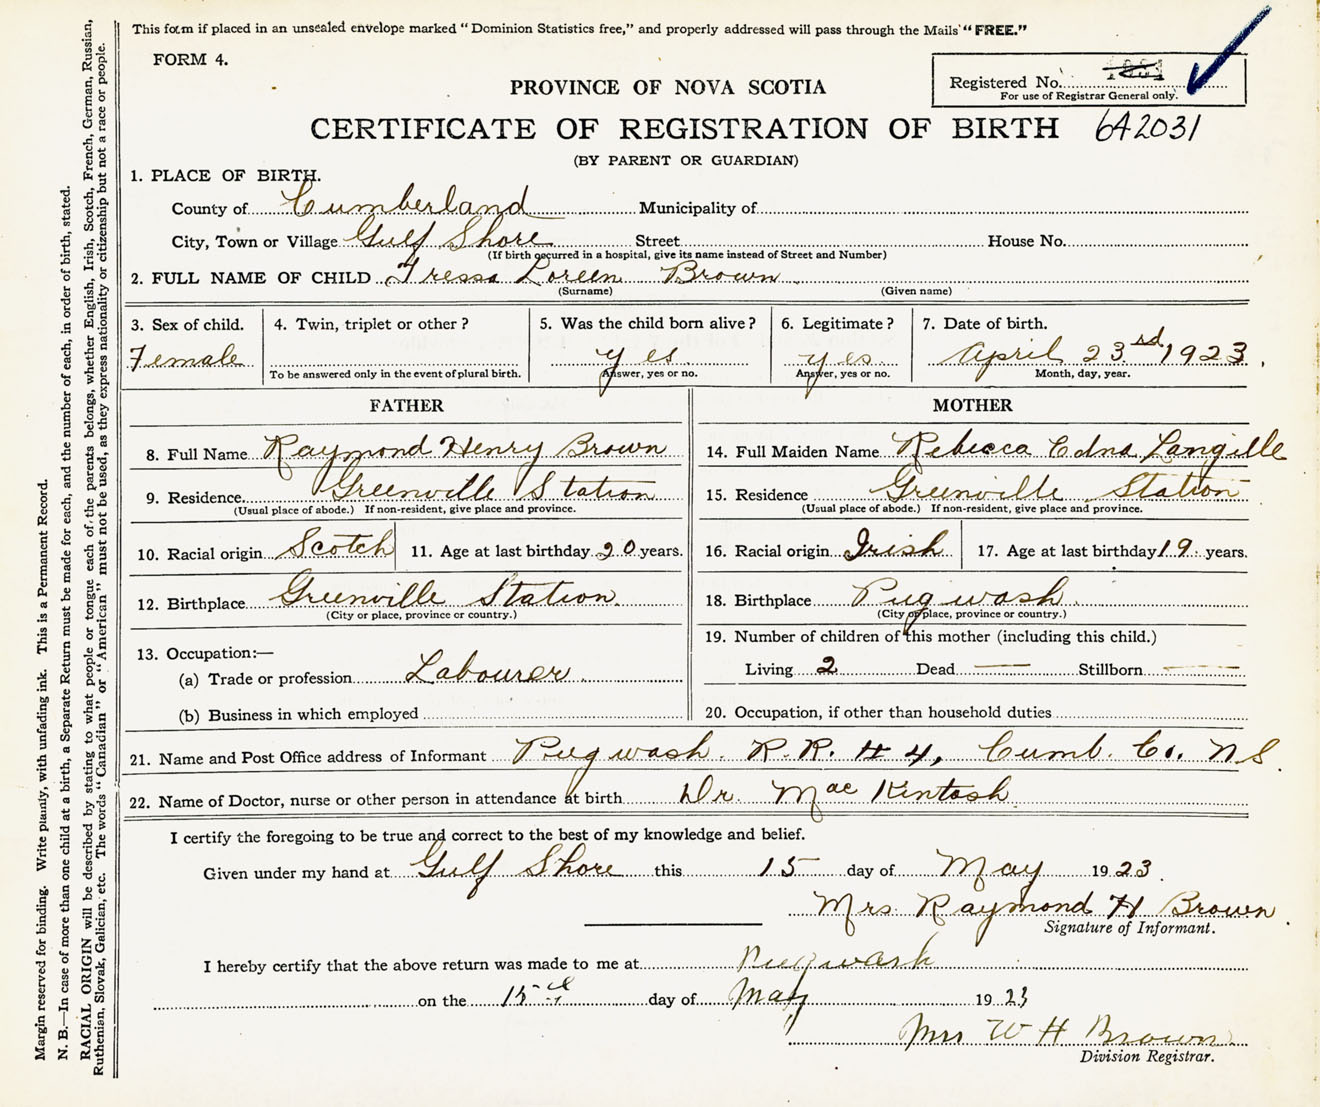 This form if placed in an unsealed envelope marked "Dominion Statistics free," and properly addressed will pass through the Mails "FREE."
FORM 4.
Registered No.
For use of Registrar General only.
PROVINCE OF NOVA SCOTIA
CERTIFICATE OF REGISTRATION OF BIRTH 642031
(BY PARENT OR GUARDIAN)
1. PLACE OF BIRTH.
County of Cumberland Municipality of
City, Town or Village Gulf Shore Street House No.
(If birth occurred in a hospital, give its name instead of Street and Number)
2. FULL NAME OF CHILD Tressa Loreen Brown
(Surname) (Given name)
3. Sex of child. 4. Twin, triplet or other? 5. Was the child born alive? 6. Legitimate? 7. Date of birth.
Female yes yes April 23rd 1923
To be answered only in the event of plural birth. Answer, yes or no. Answer, yes or no. Month, day, year.
FATHER
8. Full Name Raymond Henry Brown
9. Residence Greenville Station
(Usual place of abode.) If non-resident, give place and province.
10. Racial origin Scotch 11. Age at last birthday 20 years.
12. Birthplace Greenville Station
(City or place, province or country.)
13. Occupation:—
(a) Trade or profession Labourer
(b) Business in which employed
MOTHER
14. Full Maiden Name Rebecca Edna Langille
15. Residence Greenville Station
(Usual place of abode.) If non-resident, give place and province.
16. Racial origin Irish 17. Age at last birthday 19 years.
18. Birthplace Pugwash
(City or place, province or country.)
19. Number of children of this mother (including this child.)
Living 2 Dead — Stillborn —
20. Occupation, if other than household duties
21. Name and Post Office address of Informant Pugwash R.R. # 4, Cumb. Co. N S
22. Name of Doctor, nurse or other person in attendance at birth Dr. MacKintosh
I certify the foregoing to be true and correct to the best of my knowledge and belief.
Given under my hand at Gulf Shore this 15 day of May 1923.
Mrs Raymond H Brown
Signature of Informant.
I hereby certify that the above return was made to me at Pugwash
on the 15th day of May 1923
Mrs W H Brown
Division Registrar.
Margin reserved for binding. Write plainly, with unfading ink. This is a Permanent Record.
N. B.—In case of more than one child at a birth, a Separate Return must be made for each, and the number of each, in order of birth, stated.
RACIAL ORIGIN will be described by stating to what people or tongue each of the parents belongs, whether English, Irish, Scotch, French, German, Russian,
Ruthenian, Slovak, Galician, etc. The words "Canadian" or "American" must not be used, as they express nationality or citizenship but not a race or people.